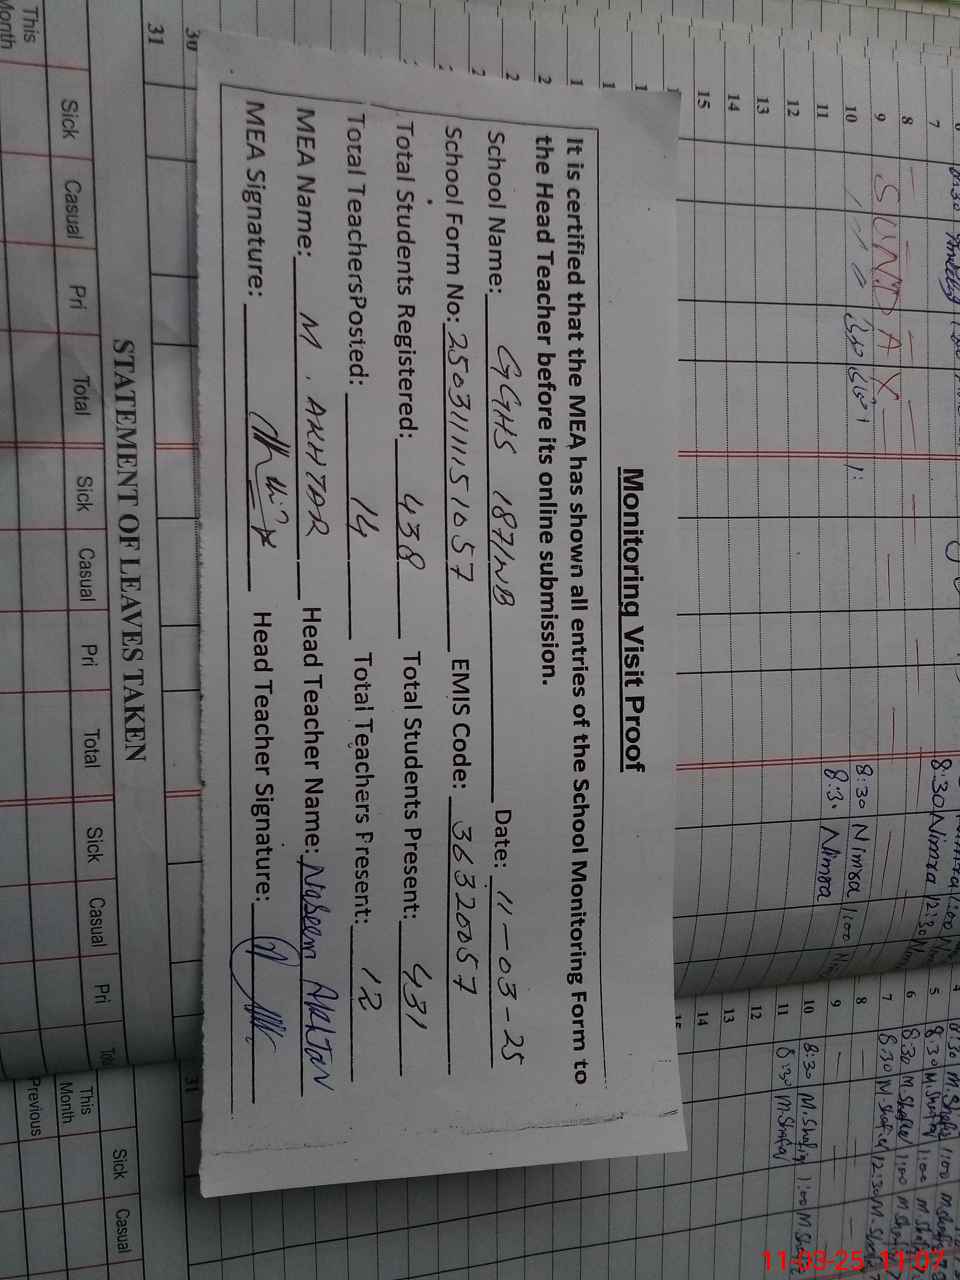 Monitoring Visit Proof
It is certified that the MEA has shown all entries of the School Monitoring Form to
the Head Teacher before its online submission.
School Name: GGHS 187/WB Date: 11-03-25
School Form No: 25031111151057 EMIS Code: 36320057
Total Students Registered: 438 Total Students Present: 431
Total TeachersPosted: 14 Total Teachers Present: 12
MEA Name: M. AKHTAR Head Teacher Name: Naseem Akhtar
MEA Signature: Head Teacher Signature:
STATEMENT OF LEAVES TAKEN
Sick Casual Pri Total Sick Casual Pri Total Sick Casual Pri
This
Month
This
Month
Previous
Sick Casual
30
31
31
7
8
9 SUNDAY
10
11
12
13
14
15
8:30 Nimra 12:30
8:30 Nimra 1:00
8:30 Nimra
4
5 8:30 M.Shafiq 1:00
6 8:30 M.Shafiq 1:00
7 8:30 M.Shafiq 12:30
8
9
10 8:30 M.Shafiq 1:00
11 8:30 M.Shafiq
12
13
14
15
11-03-25 11:07